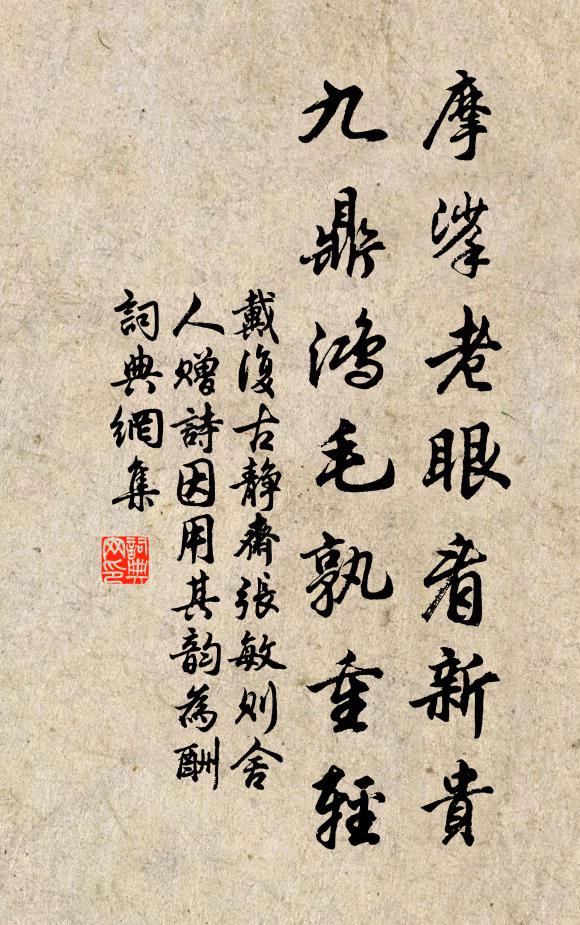 摩挲老眼看新貴
九鼎鴻毛孰重輕
戴復古靜齋張敏則舍
人贈詩因用其韵為酬
詞典網集
詞典網印